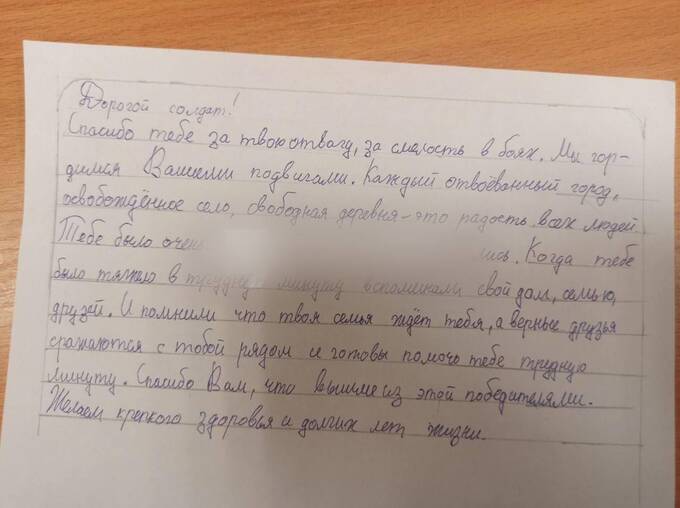 Дорогой солдат!
Спасибо тебе за твою отвагу, за смелость в боях. Мы гор-
димся Вашими подвигами. Каждый отвоёванный город,
освобождённое село, свободная деревня-это радость всех людей
Тебе было очен Когда тебе
было тяжело в трудную минуту вспоминали свой дом, семью,
друзей. И помнили что твоя семья ждёт тебя, а верные друзья
сражаются с тобой рядом и готовы помочь тебе трудную
минуту. Спасибо Вам, что вышли из этой победителями.
Желаем крепкого здоровья и долгих лет жизни.